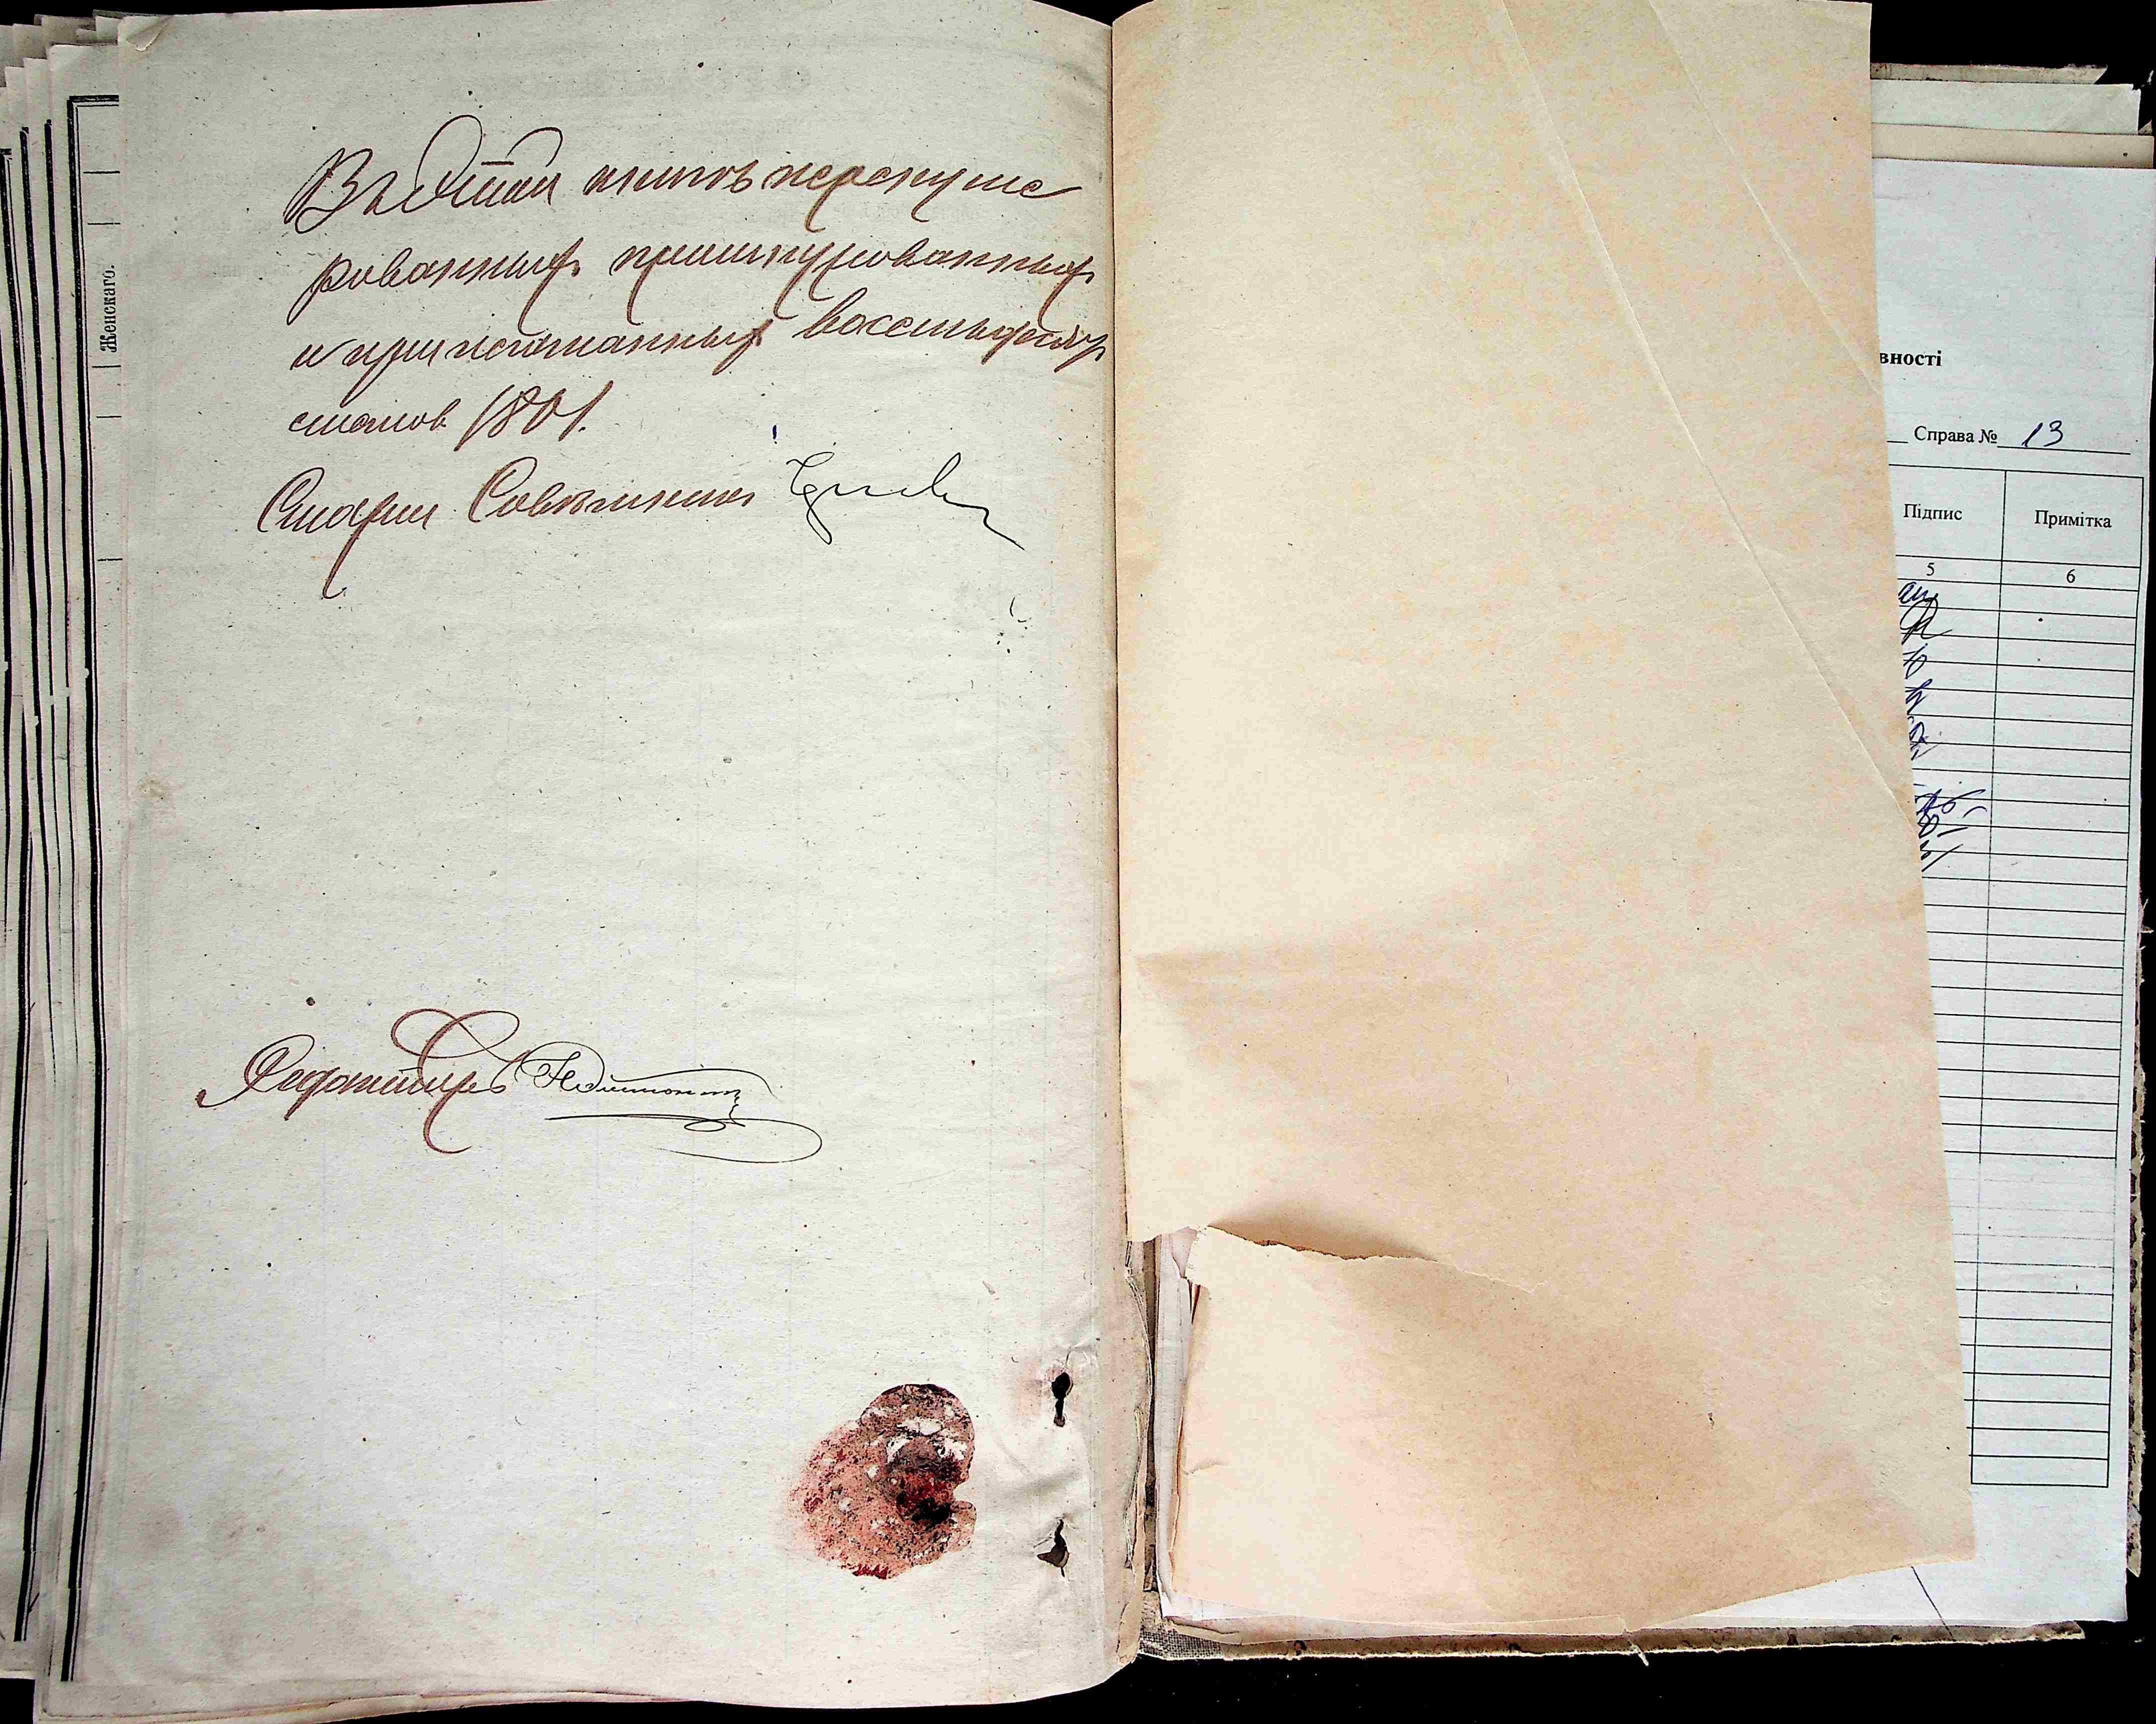 Женскаго.
Въ этой книгѣ перенуме
рованныхъ прошнурованныхъ
и припечатанныхъ восемьдесят
листовъ /80/.
Старш. Совѣтникъ
Регистраторъ
вності
Справа № 13
Підпис
Примітка
5
6